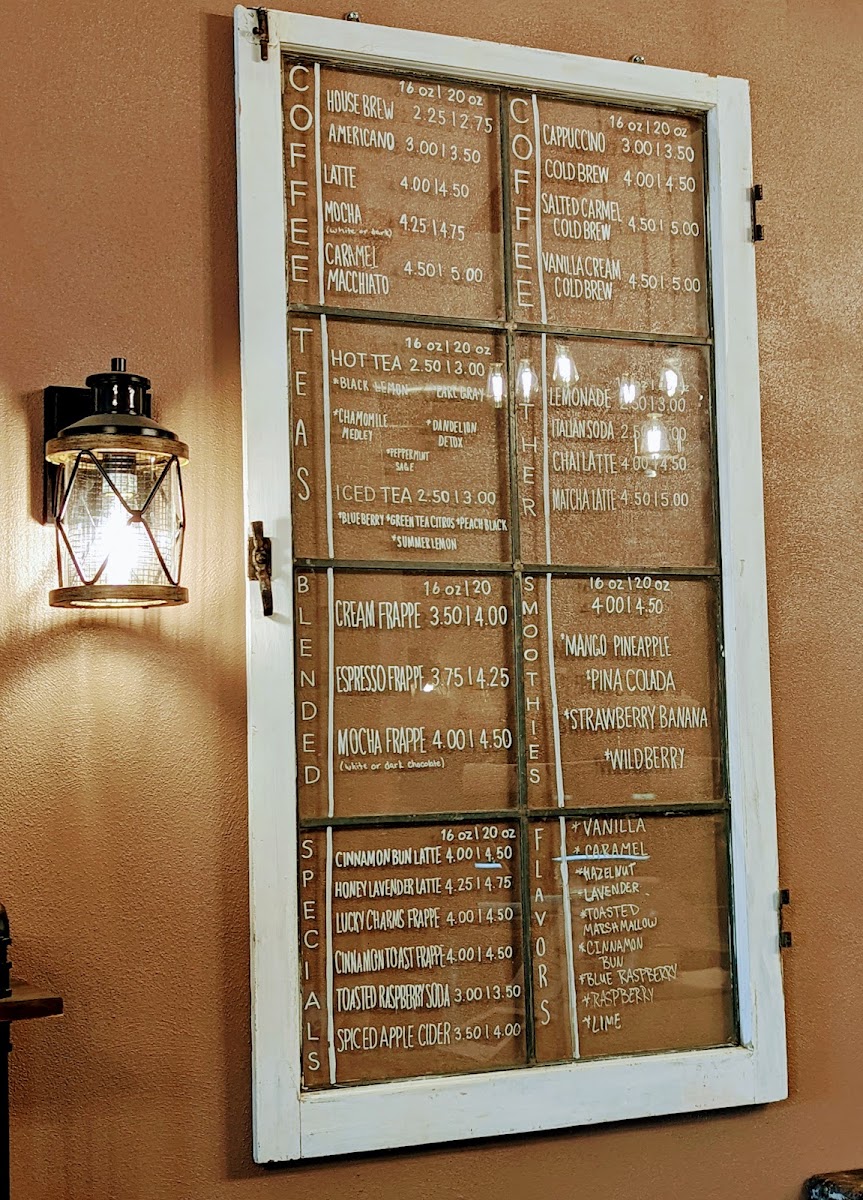 COFFEE
16 oz | 20 oz
HOUSE BREW 2.25 | 2.75
AMERICANO 3.00 | 3.50
LATTE 4.00 | 4.50
MOCHA 4.25 | 4.75
(white or dark)
CARAMEL
MACCHIATO 4.50 | 5.00
COFFEE
16 oz | 20 oz
CAPPUCCINO 3.00 | 3.50
COLD BREW 4.00 | 4.50
SALTED CARMEL
COLD BREW 4.50 | 5.00
VANILLA CREAM
COLD BREW 4.50 | 5.00
TEAS
16 oz | 20 oz
HOT TEA 2.50 | 3.00
*BLACK LEMON EARL GRAY
*CHAMOMILE
MEDLEY
*DANDELION
DETOX
*PEPPERMINT
SAGE
ICED TEA 2.50 | 3.00
*BLUEBERRY *GREEN TEA CITRUS *PEACH BLACK
*SUMMER LEMON
THER
LEMONADE 2.50 | 3.00
ITALIAN SODA
CHAI LATTE 4.00 | 4.50
MATCHA LATTE 4.50 | 5.00
BLENDED
16 oz | 20
CREAM FRAPPE 3.50 | 4.00
ESPRESSO FRAPPE 3.75 | 4.25
MOCHA FRAPPE 4.00 | 4.50
(white or dark chocolate)
SMOOTHIES
16 oz | 20 oz
4.00 | 4.50
*MANGO PINEAPPLE
*PINA COLADA
*STRAWBERRY BANANA
*WILDBERRY
SPECIALS
16 oz | 20 oz
CINNAMON BUN LATTE 4.00 | 4.50
HONEY LAVENDER LATTE 4.25 | 4.75
LUCKY CHARMS FRAPPE 4.00 | 4.50
CINNAMON TOAST FRAPPE 4.00 | 4.50
TOASTED RASPBERRY SODA 3.00 | 3.50
SPICED APPLE CIDER 3.50 | 4.00
FLAVORS
*VANILLA
*CARAMEL
*HAZELNUT
*LAVENDER
*TOASTED
MARSHMALLOW
*CINNAMON
BUN
*BLUE RASPBERRY
*RASPBERRY
*LIME